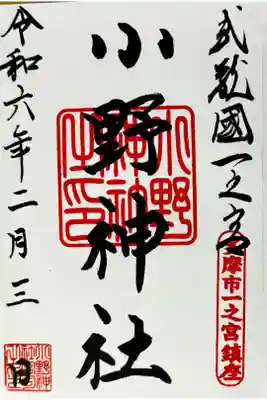 武蔵國一之宮
多摩市一之宮鎮座
小野神社
小野神社之印
令和六年二月三日
小野神社之印